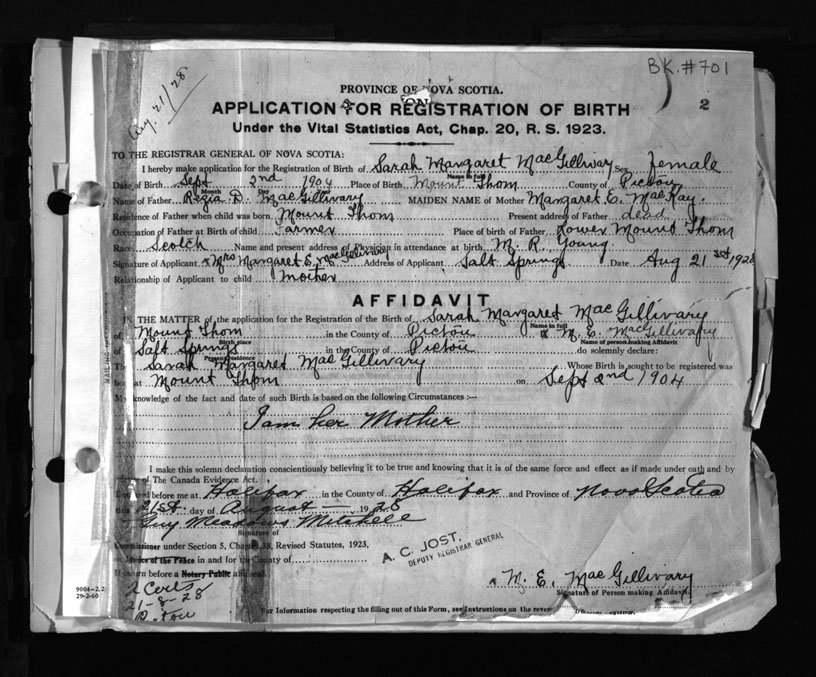 BK. #701
Aug. 21/28
PROVINCE OF NOVA SCOTIA.
2
APPLICATION FOR REGISTRATION OF BIRTH
Under the Vital Statistics Act, Chap. 20, R. S. 1923.
TO THE REGISTRAR GENERAL OF NOVA SCOTIA:
I hereby make application for the Registration of Birth of Sarah Margaret MacGillivary Sex female
Name in full
Date of Birth Sept 2nd 1904 Place of Birth Mount Thom County of Pictou
Month Day Year
Name of Father D. MacGillivary MAIDEN NAME of Mother Margaret E. MacKay.
Residence of Father when child was born Mount Thom Present address of Father dead
Occupation of Father at Birth of child Farmer Place of birth of Father Lower Mount Thom
Race Scotch Name and present address of Physician in attendance at birth M. R. Young
Signature of Applicant x Mrs Margaret E. MacGillivary Address of Applicant Salt Springs Date Aug 21st 1928
Relationship of Applicant to child mother
AFFIDAVIT
IN THE MATTER of the application for the Registration of the Birth of Sarah Margaret MacGillivary
Name in full
of Mount Thom in the County of Pictou M. E. MacGillivary
Birth place Name of person making Affidavit
of Salt Springs in the County of Pictou do solemnly declare:
Present residence
The Sarah Margaret MacGillivary Whose Birth is sought to be registered was
born at Mount Thom on Sept 2nd 1904
My knowledge of the fact and date of such Birth is based on the following Circumstances :—
I am her Mother
I make this solemn declaration conscientiously believing it to be true and knowing that it is of the same force and effect as if made under oath and by
of The Canada Evidence Act.
Declared before me at Halifax in the County of Halifax and Province of Nova Scotia
this 21st day of August 1928
Guy Meadows Mitchell
Signature of
Commissioner under Section 5, Chapter 38, Revised Statutes, 1923,
or Justice of the Peace in and for the County of
A. C. JOST,
DEPUTY REGISTRAR GENERAL
If sworn before a Notary Public affix seal.
x M. E. MacGillivary
Signature of Person making Affidavit
9004-2.2
29-2-60
2 Certs
21-8-28
For Information respecting the filling out of this Form, see Instructions on the